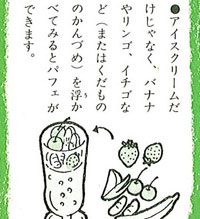 ●アイスクリームだ
けじゃなく、バナナ
やリンゴ、イチゴな
ど（またはくだもの
のかんづめ）を浮か
べてみるとパフェが
できます。